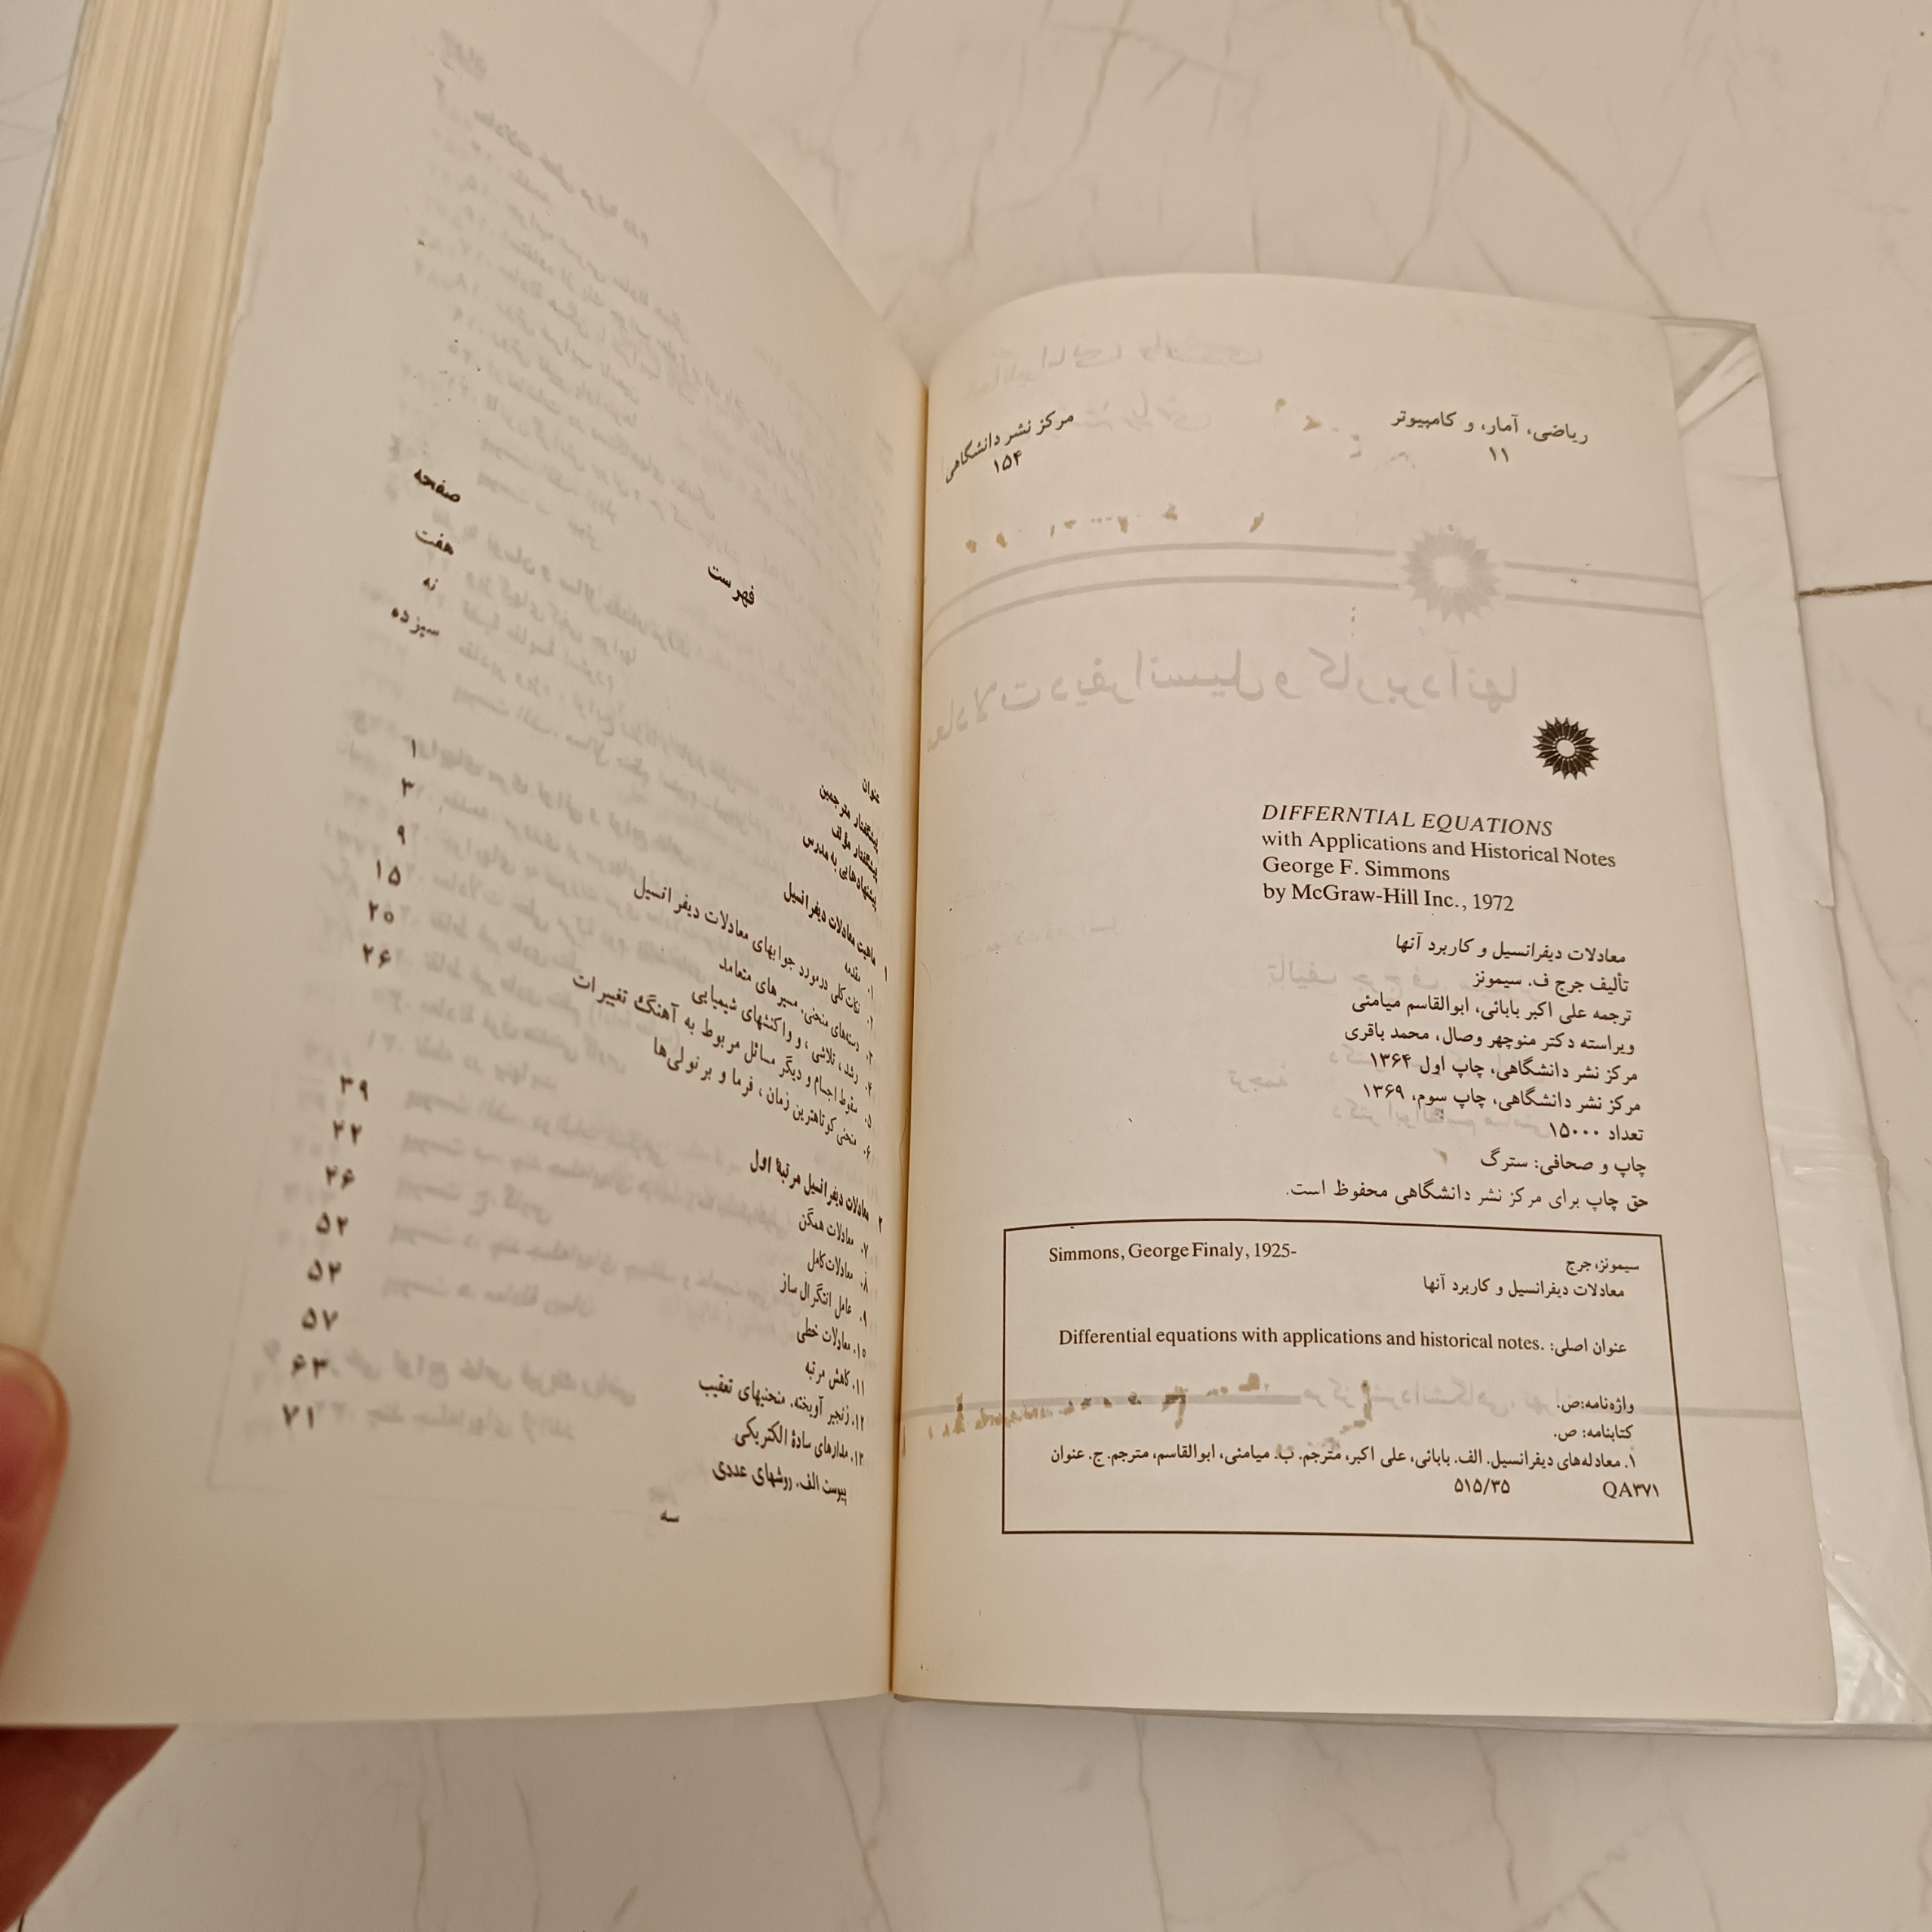 ریاضی، آمار، و کامپیوتر
۱۱
مرکز نشر دانشگاهی
۱۵۴
DIFFERNTIAL EQUATIONS
with Applications and Historical Notes
George F. Simmons
by McGraw-Hill Inc., 1972
معادلات دیفرانسیل و کاربرد آنها
تألیف جرج ف. سیمونز
ترجمه علی اکبر بابائی، ابوالقاسم میامئی
ویراسته دکتر منوچهر وصال، محمد باقری
مرکز نشر دانشگاهی، چاپ اول ۱۳۶۴
مرکز نشر دانشگاهی، چاپ سوم، ۱۳۶۹
تعداد ۱۵۰۰۰
چاپ و صحافی: سترگ
حق چاپ برای مرکز نشر دانشگاهی محفوظ است.
سیمونز، جرج Simmons, George Finaly, 1925-
معادلات دیفرانسیل و کاربرد آنها
عنوان اصلی: Differential equations with applications and historical notes.
واژه‌نامه:ص.
کتابنامه: ص.
۱. معادله‌های دیفرانسیل. الف. بابائی، علی اکبر، مترجم. ب. میامئی، ابوالقاسم، مترجم. ج. عنوان
QA۳۷۱ ۵۱۵/۳۵
فهرست
عنوان صفحه
پیشگفتار مترجمین هفت
پیشگفتار مؤلف نه
پیشنهادهایی به مدرس سیزده
۱ ماهیت معادلات دیفرانسیل ۱
۱. مقدمه ۱
۲. نکات کلی درمورد جوابهای معادلات دیفرانسیل ۳
۳. دسته‌های منحنی. مسیرهای متعامد ۹
۴. رشد، تلاشی، و واکنشهای شیمیایی ۱۵
۵. سقوط اجسام و دیگر مسائل مربوط به آهنگ تغییرات ۲۰
۶. منحنی کوتاهترین زمان، فرما و برنولی‌ها ۲۶
۲ معادلات دیفرانسیل مرتبهٔ اول
۷. معادلات همگن ۳۹
۸. معادلات کامل ۴۲
۹. عامل انتگرال ساز ۴۶
۱۰. معادلات خطی ۵۲
۱۱. کاهش مرتبه ۵۴
۱۲. زنجیر آویخته. منحنیهای تعقیب ۵۷
۱۳. مدارهای سادهٔ الکتریکی ۶۳
پیوست الف. روشهای عددی ۷۱
سه